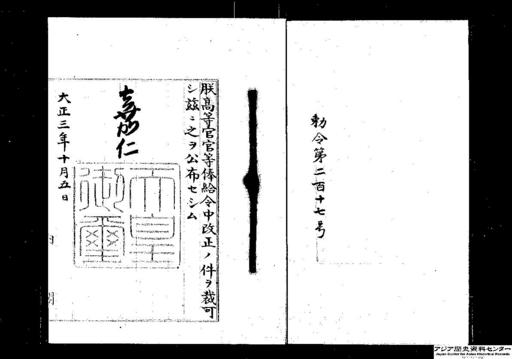 勅令第二百十七号
朕高等官官等俸給令中改正ノ件ヲ裁可
シ玆ニ之ヲ公布セシム
嘉仁
天皇
御璽
大正三年十月五日
アジア歴史資料センター
Japan Center for Asian Historical Records